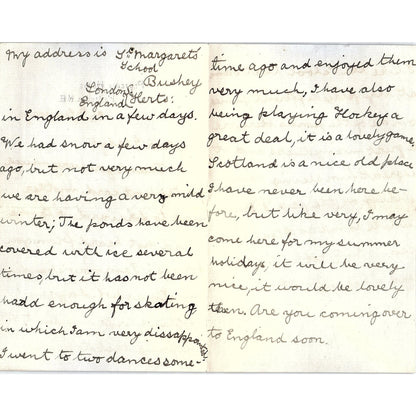 My address is St. Margaret's
School
Bushey
London Herts:
England
in England in a few days.
We had snow a few days
ago, but not very much
we are having a very mild
winter; The ponds have been
covered with ice several
times, but it has not been
hadd enough for skating
in which I am very dissappointed.
I went to two dances some-
time ago and enjoyed them
very much, I have also
being playing Hockey a
great deal, it is a lovely game,
Scotland is a nice old place
I have never been here be-
fore, but like very, I may
come here for my summer
holidays, it will be very
nice, it would be lovely
then. Are you coming over
to England soon.